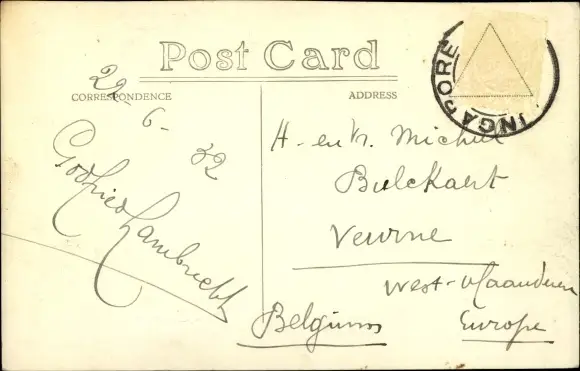 Post Card
CORRESPONDENCE
ADDRESS
INGAPORE
22-6-32
Godfried Lambrecht
H- en Vr. Michiel
Bulckaert
Veurne
West-Vlaanderen
Belgium
Europe